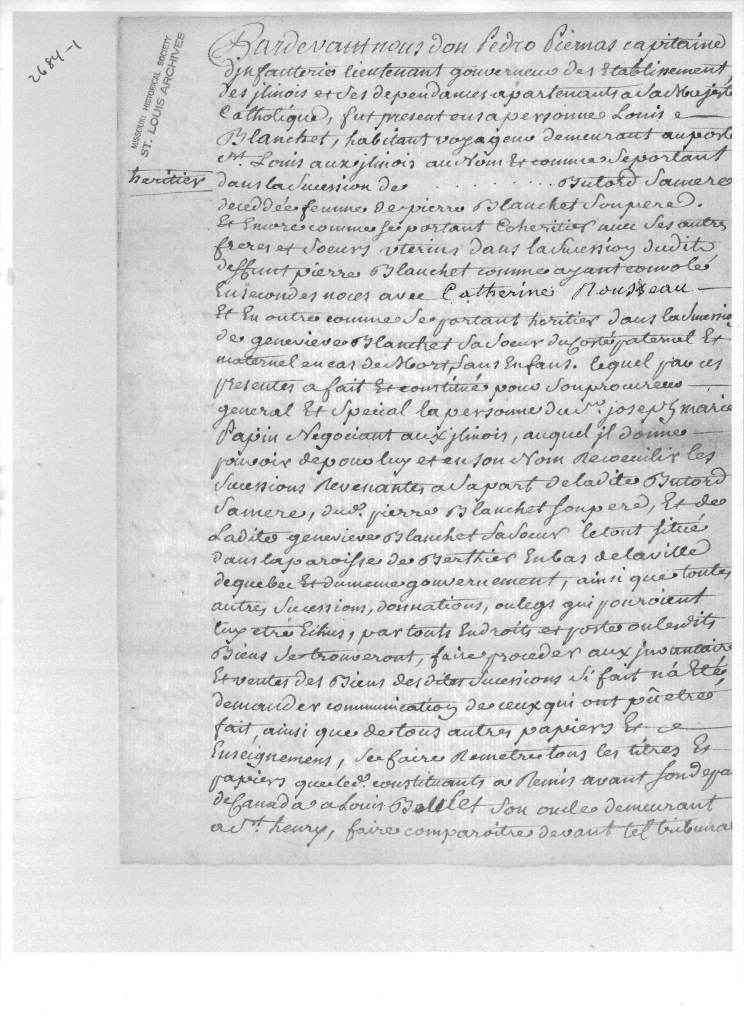 2684-1
MISSOURI HISTORICAL SOCIETY
ST. LOUIS ARCHIVES
Pardevant nous don Pedro Piernas capitaine
dinfanterie lieutenant gouverneur des Etablissement
des jlinois et Ses dependances apartenants a Sa Majesté
Catholique, fut present en sa personne Louis
Blanchet, habitant voyageur demeurant au poste
St. Louis aux jlinois au Nom Et comme Se portant
heritier dans la Sucession de . . . . . . . Butord Sa mere
decedée femme de pierre Blanchet Son pere.
Et Encore comme Se portant Coheritier avec Ses autres
freres et Soeurs uterins dans la Sucession dudit
deffunt pierre Blanchet comme ayant convolé
En secondes noces avec Catherine Rousseau
Et En outre comme Se portant heritier dans la Sucession
de genevieve Blanchet Sa Soeur du Costé paternel Et
maternel en cas de Mort Sans Enfans. lequel par ces
presentes a fait Et constitué pour Son procureur
general Et Special la personne du Sr. joseph marie
Papin Negociant aux jlinois, auquel jl donne
pouvoir de pour luy et en son Nom Recoeuilir les
Sucessions Revenantes a Sa part de ladite Butord
Sa mere, dud. pierre Blanchet Son pere, Et de
Ladite genevieve Blanchet Sa Soeur le tout Situé
dans la paroisse de Berthier En bas de la ville
de quebec Et du meme gouvernement, ainsi que toutes
autres Sucessions, donnations, ou legs qui pouroient
luy etré Echus, par touts Endroits et poste ou lesdits
Biens Se trouveront, faire proceder aux jnvantaire
Et ventes des Biens desdites Sucessions Si fait n'a Eté
demander communication de ceux qui ont pû etré
fait, ainsi que de tous autres papiers Et
Enseignement, Se faire Remetre tous les titres Et
papiers que led. constituants a Remis avant Son depa
de Canada a Louis Son oncle demeurant
a St. henry, faire comparoitre devant tel tribuna